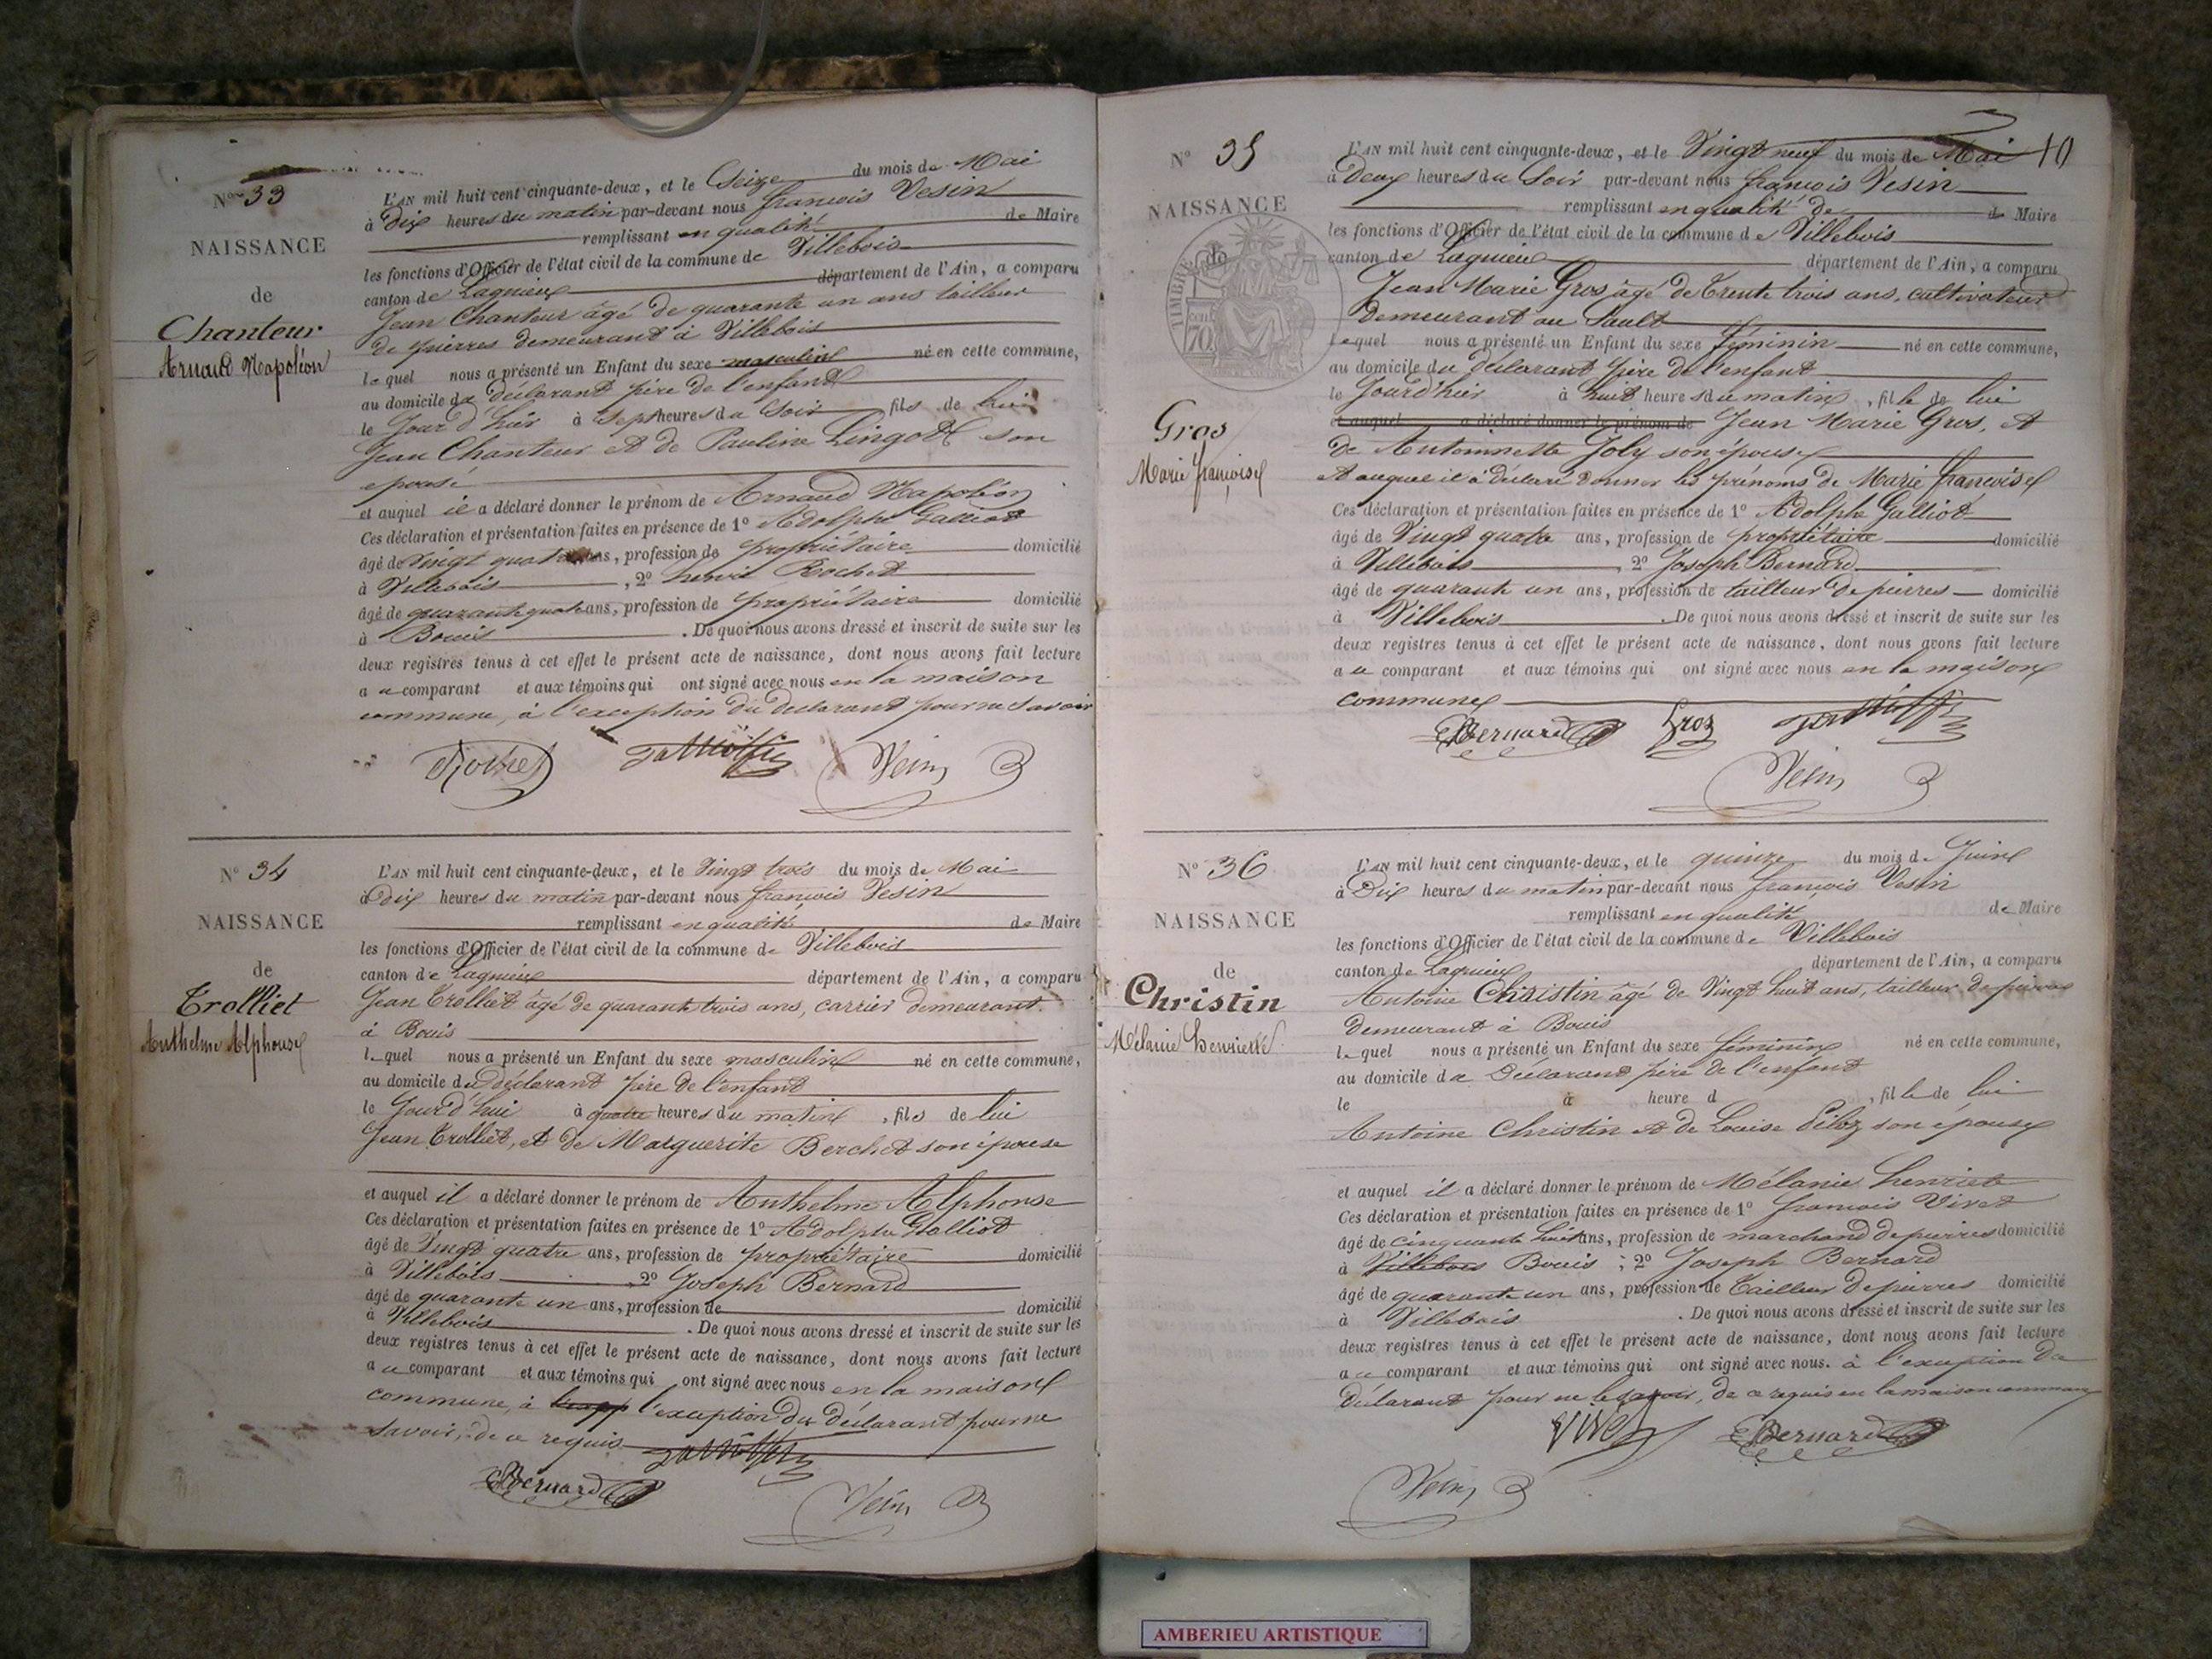 N° 33
NAISSANCE
de
Chanteur
Arnaud Napoléon
L'AN mil huit cent cinquante-deux, et le Seize du mois de Mai
à Dix heures du matin par-devant nous françois Vesin
remplissant en qualité de Maire
les fonctions d'Officier de l'état civil de la commune de Villebois
canton de Lagnieu département de l'Ain, a comparu
Jean Chanteur âgé de quarante un ans tailleur
de pierres demeurant à Villebois
lequel nous a présenté un Enfant du sexe masculin né en cette commune,
au domicile du déclarant père de l'enfant
le Jour d'hier à Sept heures du Soir fils de lui
Jean Chanteur et de Pauline Lingot son
épouse
et auquel il a déclaré donner le prénom de Arnaud Napoléon
Ces déclaration et présentation faites en présence de 1° Adolphe Galliot
âgé de Vingt quatre ans, profession de propriétaire domicilié
à Villebois, 2° henri Rochet
âgé de quarante quatre ans, profession de propriétaire domicilié
à Bouis. De quoi nous avons dressé et inscrit de suite sur les
deux registres tenus à cet effet le présent acte de naissance, dont nous avons fait lecture
a ce comparant et aux témoins qui ont signé avec nous en la maison
commune, à l'exception du declarant pour ne savoir
Rochet Galliot Vesin
N° 34
NAISSANCE
de
Trolliet
Anthelme Alphonse
L'AN mil huit cent cinquante-deux, et le Vingt trois du mois de Mai
à dix heures du matin par-devant nous françois Vesin
remplissant en qualité de Maire
les fonctions d'Officier de l'état civil de la commune de Villebois
canton de Lagnieu département de l'Ain, a comparu
Jean Trolliet âgé de quarante trois ans, carrier demeurant
à Bouis
lequel nous a présenté un Enfant du sexe masculin né en cette commune,
au domicile du déclarant père de l'enfant
le Jourd'hui à quatre heures du matin, fils de lui
Jean Trolliet, et de Marguerite Berchet son épouse
et auquel il a déclaré donner le prénom de Anthelme Alphonse
Ces déclaration et présentation faites en présence de 1° Adolphe Galliot
âgé de Vingt quatre ans, profession de propriétaire domicilié
à Villebois 2° Joseph Bernard
âgé de quarante un ans, profession de domicilié
à Villebois. De quoi nous avons dressé et inscrit de suite sur les
deux registres tenus à cet effet le présent acte de naissance, dont nous avons fait lecture
a ce comparant et aux témoins qui ont signé avec nous en la maison
commune, à l'exception du déclarant pour ne
savoir, de ce requis
Galliot
Bernard Vesin
10
N° 35
NAISSANCE
de
TIMBRE
70 cen
Gros
Marie françoise
L'AN mil huit cent cinquante-deux, et le Vingt neuf du mois de Mai
à Deux heures du Soir par-devant nous françois Vesin
remplissant en qualité de de Maire
les fonctions d'Officier de l'état civil de la commune de Villebois
canton de Lagnieu département de l'Ain, a comparu
Jean Marie Gros âgé de Trente trois ans, cultivateur
demeurant au Sault
lequel nous a présenté un Enfant du sexe féminin né en cette commune,
au domicile du déclarant père de l'enfant
le Jourd'hui à huit heures du matin, fille de lui
et auquel a déclaré donner le prénom de Jean Marie Gros, et
de Antoinette Joly son épouse
et auquel il a déclaré donner les prénoms de Marie françoise
Ces déclaration et présentation faites en présence de 1° Adolphe Galliot
âgé de Vingt quatre ans, profession de propriétaire domicilié
à Villebois, 2° Joseph Bernard
âgé de quarante un ans, profession de tailleur de pierres domicilié
à Villebois. De quoi nous avons dressé et inscrit de suite sur les
deux registres tenus à cet effet le présent acte de naissance, dont nous avons fait lecture
a ce comparant et aux témoins qui ont signé avec nous en la maison
commune
Bernard Gros Galliot
Vesin
N° 36
NAISSANCE
de
Christin
Mélanie henriette
L'AN mil huit cent cinquante-deux, et le quinze du mois de Juin
à Dix heures du matin par-devant nous françois Vesin
remplissant en qualité de Maire
les fonctions d'Officier de l'état civil de la commune de Villebois
canton de Lagnieu département de l'Ain, a comparu
Antoine Christin âgé de Vingt huit ans, tailleur de pierres
demeurant à Bouis
lequel nous a présenté un Enfant du sexe féminin né en cette commune,
au domicile du Déclarant père de l'enfant
le à heure d, fille de lui
Antoine Christin et de Louise Piloz son épouse
et auquel il a déclaré donner le prénom de Mélanie henriete
Ces déclaration et présentation faites en présence de 1° françois Vivet
âgé de cinquante huit ans, profession de marchand de pierres domicilié
à Villebois Bouis; 2° Joseph Bernard
âgé de quarante un ans, profession de Tailleur de pierres domicilié
à Villebois. De quoi nous avons dressé et inscrit de suite sur les
deux registres tenus à cet effet le présent acte de naissance, dont nous avons fait lecture
a ce comparant et aux témoins qui ont signé avec nous. à l'exception du
Déclarant pour ne le savoir, de ce requis en la maison commune
Vivet Bernard
Vesin
AMBERIEU ARTISTIQUE